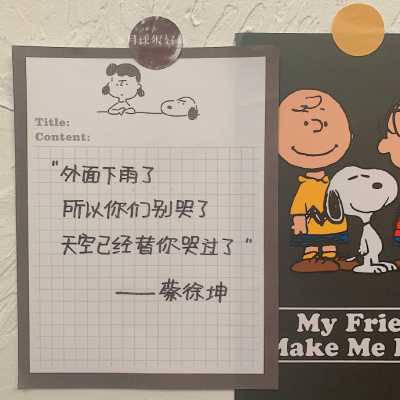 Title:
Content:
"外面下雨了
所以你们别哭了
天空已经替你哭过了"
——蔡徐坤
My Frie
Make Me